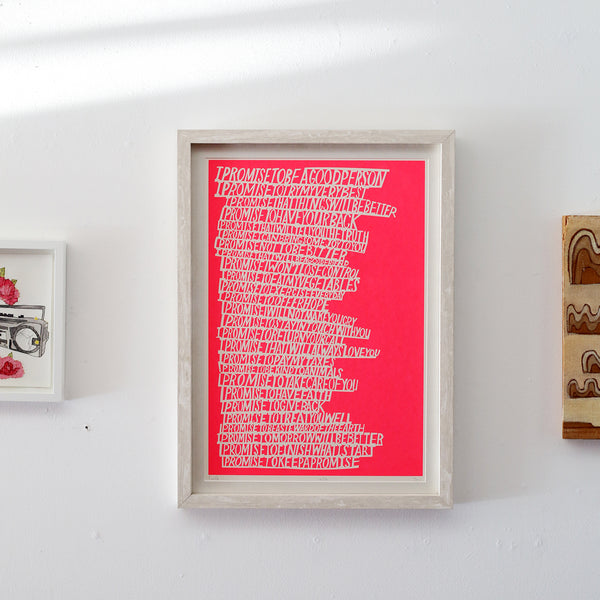 I PROMISE TO BE A GOOD PERSON
I PROMISE TO TRY MY VERY BEST
I PROMISE THAT THINGS WILL BE BETTER
I PROMISE TO HAVE YOUR BACK
I PROMISE THAT I WILL TELL YOU THE TRUTH
I PROMISE I CAN BRING ME TO YOU
I PROMISE NOT TO BE BITTER
I PROMISE THAT I WILL BE A GOOD FRIEND
I PROMISE I WON'T LOSE CONTROL
I PROMISE TO EAT MY VEGETABLES
I PROMISE TO EXERCISE EVERYDAY
I PROMISE TO OFFER HOPE
I PROMISE I WILL NOT MAKE A
I PROMISE TO STAY IN TOUCH WITH YOU
I PROMISE TO RETURN YOUR CALL
I PROMISE THAT I WILL ALWAYS LOVE YOU
I PROMISE TO PAY MY TAXES
I PROMISE TO BE KIND TO ANIMALS
I PROMISE TO TAKE CARE OF YOU
I PROMISE TO HAVE FAITH
I PROMISE TO GIVE BACK
I PROMISE TO TREAT YOU WELL
I PROMISE TO BE A STEWARD OF THE EARTH
I PROMISE TOMORROW WILL BE BETTER
I PROMISE TO FINISH WHAT I START
I PROMISE TO KEEP A PROMISE